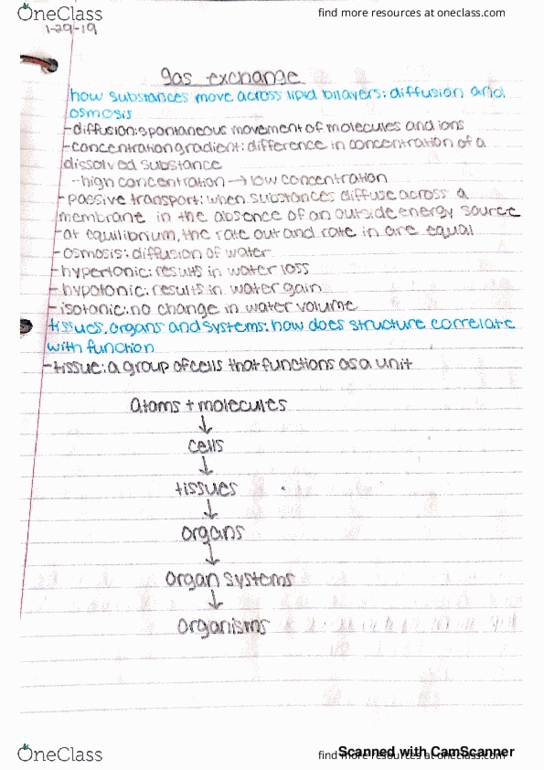 OneClass
find more resources at oneclass.com
1-29-19
gas exchange
how substances move across lipid bilayers: diffusion and
osmosis
-diffusion: spontaneous movement of molecules and ions
-concentration gradient: difference in concentration of a
dissolved substance
-high concentration → low concentration
-passive transport: when substances diffuse across a
membrane in the absence of an outside energy source
-at equilibrium, the rate out and rate in are equal
-osmosis: diffusion of water
-hypertonic: results in water loss
-hypotonic: results in water gain
-isotonic: no change in water volume
tissues, organs and systems: how does structure correlate
with function
-tissue: a group of cells that functions as a unit
atoms + molecules
↓
cells
↓
tissues
↓
organs
↓
organ systems
↓
organisms
OneClass
find more resources at oneclass.com
Scanned with CamScanner